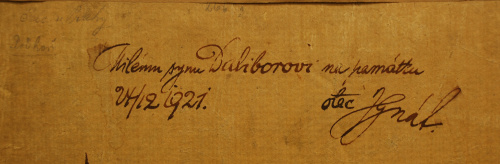 Milému synu Daliborovi na památku
24/12 1921. otec Ignát.